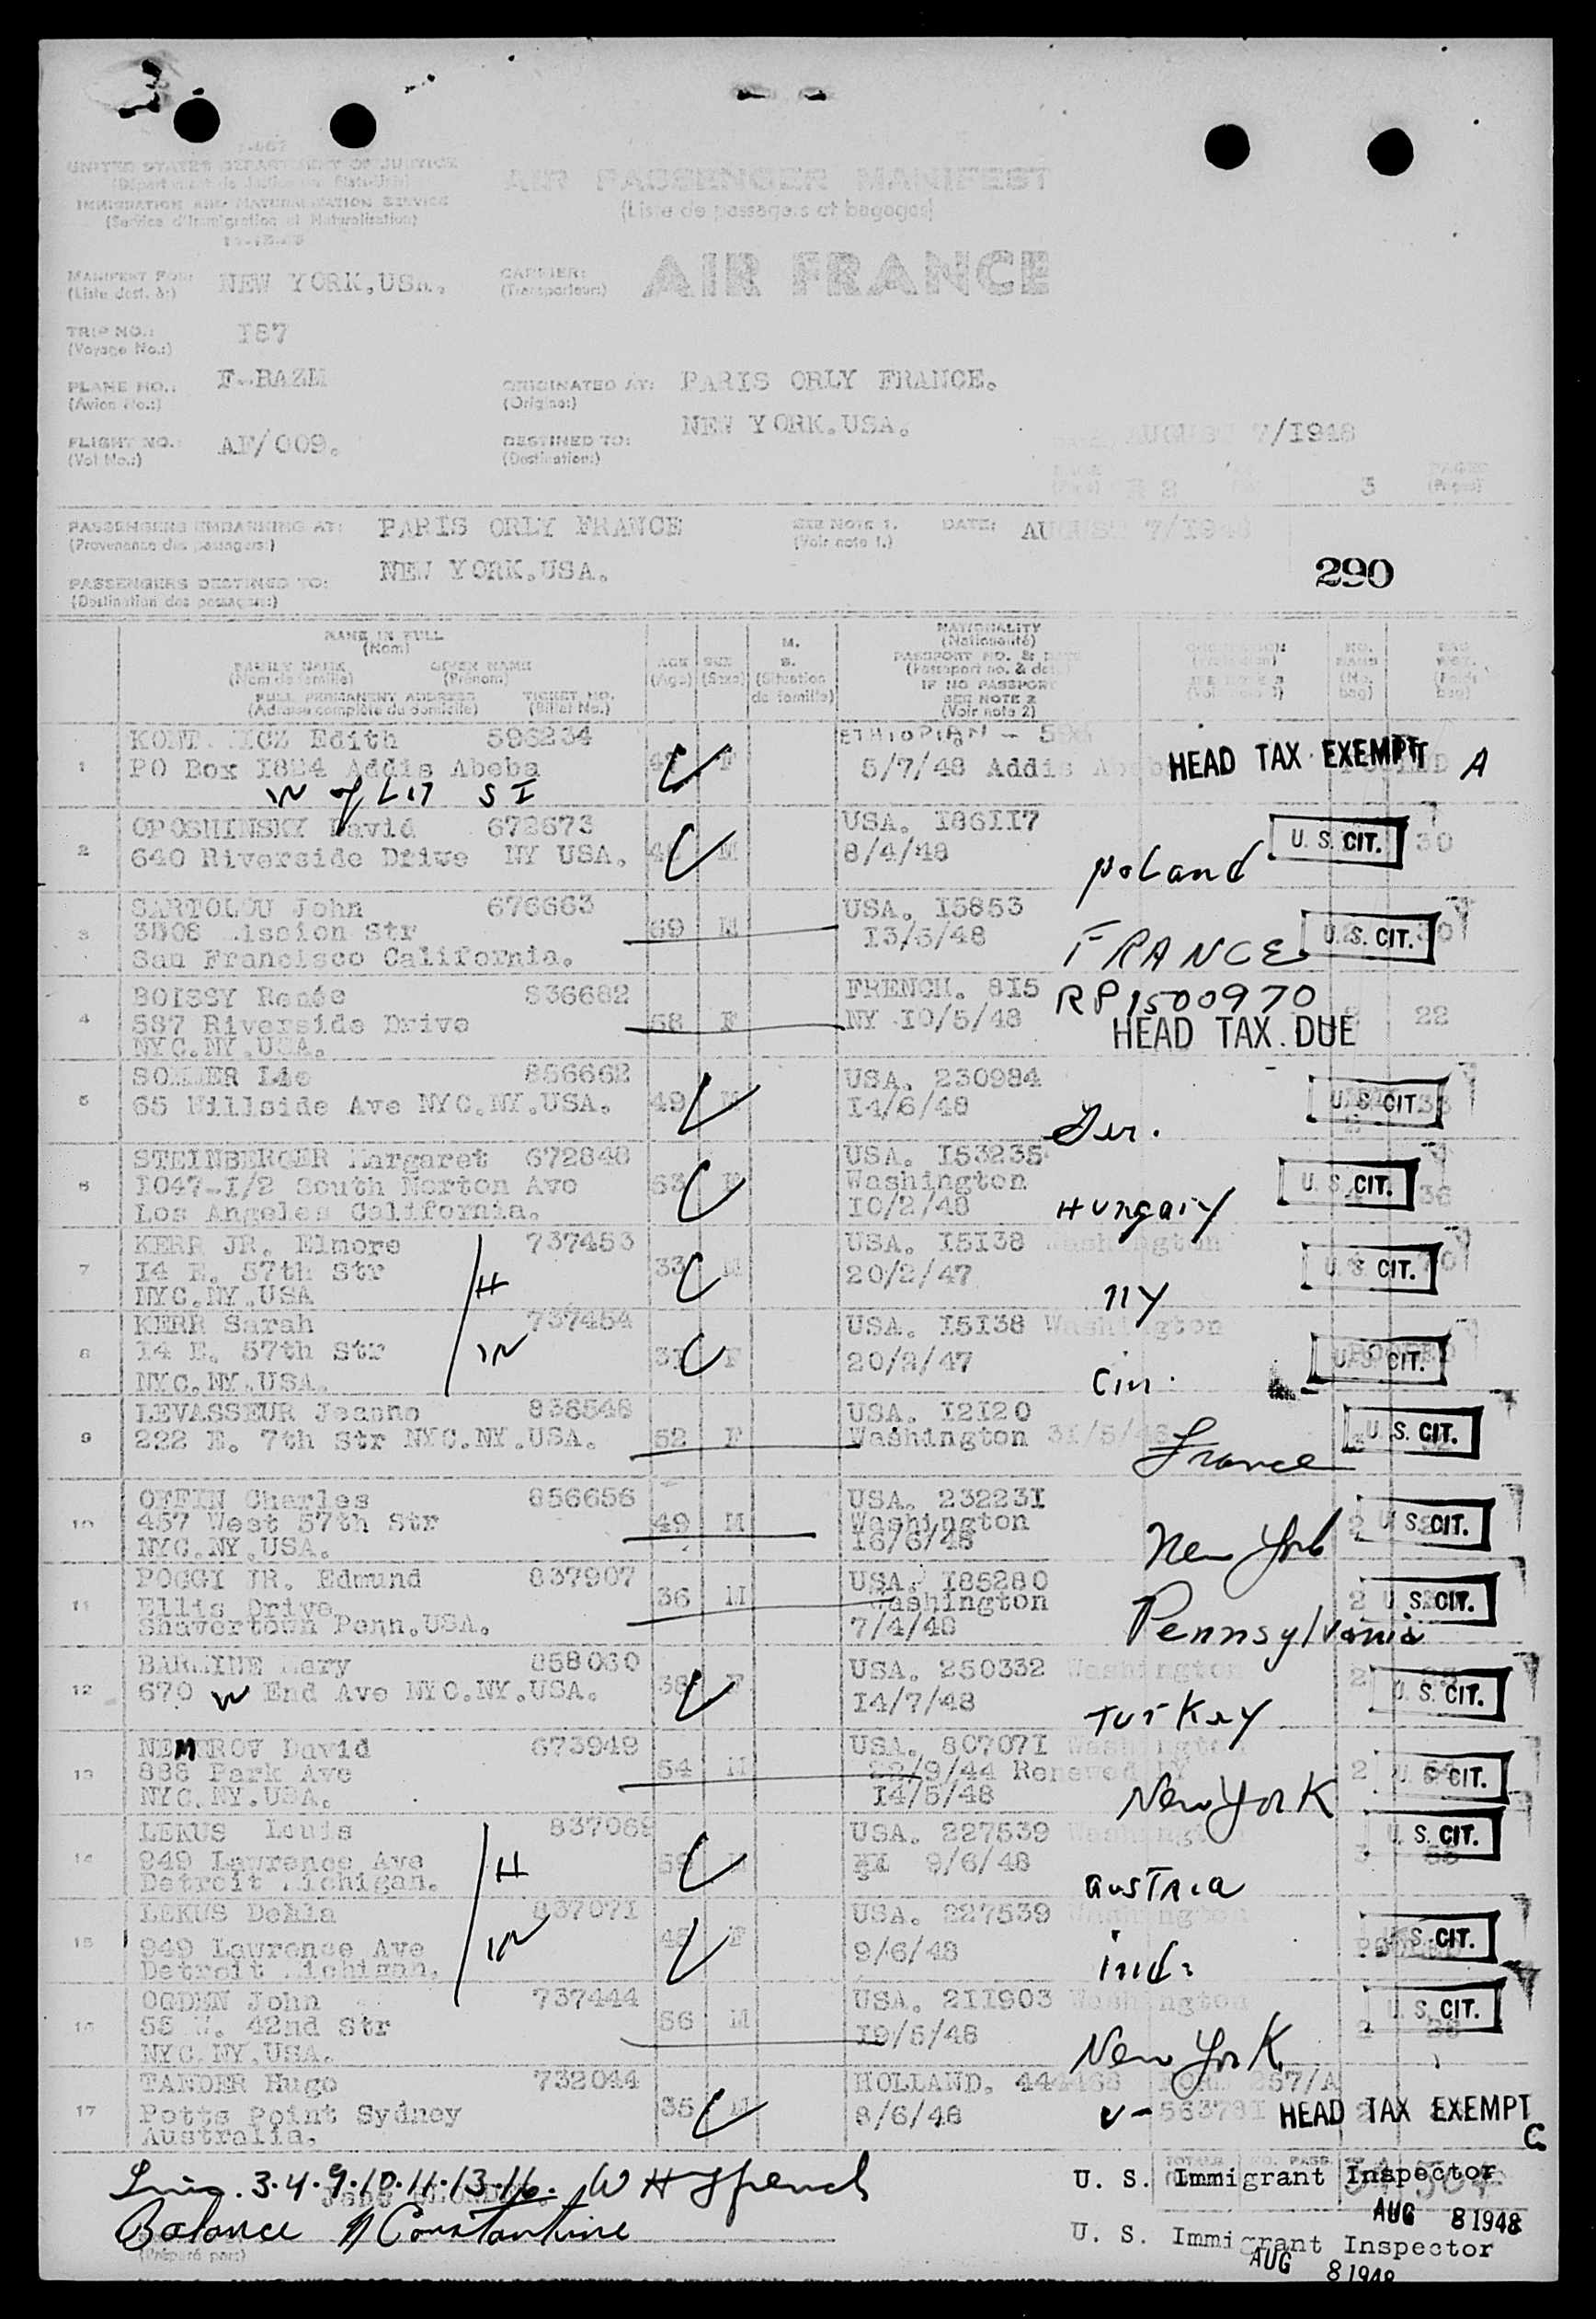 UNITED STATES DEPARTMENT OF JUSTICE
IMMIGRATION AND NATURALIZATION SERVICE
(Service d'Immigration et Naturalisation)
AIR PASSENGER MANIFEST
(Liste de passagers et bagages)
MANIFEST FOR: NEW YORK,USA.
(Liste dest. à:)
CARRIER: AIR FRANCE
(Transporteur:)
TRIP NO.: I87
(Voyage No.:)
PLANE NO.: F-BAZM
(Avion No.:)
ORIGINATED AT: PARIS ORLY FRANCE.
(Origine:)
FLIGHT NO.: AF/009.
(Vol No.:)
DESTINED TO: NEW YORK.USA.
(Destination:)
AUGUST 7/I948
3
PASSENGERS EMBARKING AT: PARIS ORLY FRANCE
(Provenance des passagers:)
SEE NOTE 1.
(Voir note 1.)
DATE: AUGUST 7/I948
PASSENGERS DESTINED TO: NEW YORK.USA.
(Destination des passagers:)
290
NAME IN FULL
(Nom)
FAMILY NAME GIVEN NAME
(Nom de famille) (Prénom)
FULL PERMANENT ADDRESS TICKET NO.
(Adresse complète du domicile) (Billet No.)
AGE
(Age)
SEX
(Sexe)
M. S.
(Situation de famille)
NATIONALITY
(Nationalité)
PASSPORT NO. & DATE
(Passeport no. & date)
IF NO PASSPORT
SEE NOTE 2
(Voir note 2)
1 Edith 598234 F ETHIOPIAN -
PO Box I824 Addis Abeba 5/7/48 Addis Abeba HEAD TAX EXEMPT A
W of L17 S I
2 OPOSHINSKY David 672673 M USA. I86II7 U. S. CIT. 30
640 Riverside Drive NY USA. 8/4/48 Poland
3 SARTOLOU John 676663 69 M USA. I5853 U. S. CIT.
3808 Mission Str I3/3/48 FRANCE
San Francisco California.
4 BOISSY Renée 836682 58 F FRENCH. 8I5 RP 1500970
587 Riverside Drive NY I0/5/48 HEAD TAX DUE 22
NYC.NY.USA.
5 SOMMER 856662 49 M USA. 230984 U. S. CIT.
65 Hillside Ave NYC.NY.USA. I4/6/48 Ger.
6 STEINBERGER Margaret 672848 63 F USA. I53235 U. S. CIT. 36
I047-I/2 South Norton Ave Washington Hungary
Los Angeles California. I0/2/48
7 KERR JR. Elmore 737453 33 M USA. I5I38 Washington U. S. CIT.
I4 E. 57th Str H 20/2/47 NY
NYC.NY.USA
8 KERR Sarah 737454 3I F USA. I5I38 Washington U. S. CIT.
I4 E. 57th Str W 20/2/47 Cin.
NYC.NY.USA.
9 LEVASSEUR Jeanne 838548 52 F USA. I2I20 U. S. CIT.
222 E. 7th Str NYC.NY.USA. Washington 3I/5/48 France
10 OFFIN Charles 856656 49 M USA. 23223I U. S. CIT.
457 West 57th Str Washington New York
NYC.NY.USA. I6/6/48
11 POGGI JR. Edmund 837907 36 M USA. I85280 2 U. S. CIT.
Ellis Drive Washington Pennsylvania
Shavertown Penn.USA. 7/4/48
12 BARMINE Mary 858030 38 F USA. 250332 Washington 2 U. S. CIT.
670 W End Ave NYC.NY.USA. I4/7/48 Turkey
13 NEMEROV David 673949 54 M USA. 80707I Washington 2 U. S. CIT.
888 Park Ave 22/9/44 Renewed NY New York
NYC.NY.USA. I4/5/48
14 LEKUS Louis 837069 59 M USA. 227539 Washington U. S. CIT.
949 Lawrence Ave H 9/6/48 Austria
Detroit Michigan.
15 LEKUS 83707I F USA. 227539 Washington U. S. CIT.
949 Lawrence Ave W 9/6/48 Ind.
Detroit Michigan.
16 OGDEN John 737444 56 M USA. 2II903 Washington U. S. CIT.
58 W. 42nd Str I9/5/48 New York
NYC.NY.USA.
17 Hugo 732044 35 M HOLLAND.
Potts Point Sydney 8/6/48 HEAD TAX EXEMPT
Australia. C
3.4.9.10.11.13.16. W H French
U. S. Immigrant Inspector
AUG 8 1948
Balance Constantine
U. S. Immigrant Inspector
AUG 8 1948
(Préparé par:)